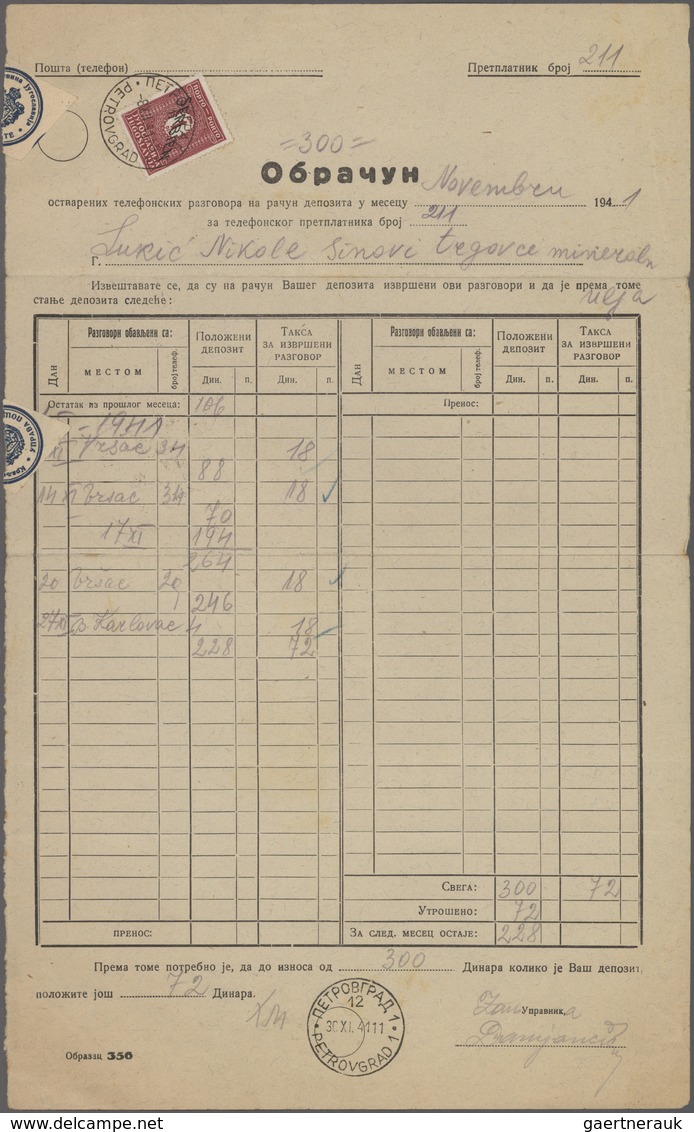 Пошта (телефон)
Претплатник број 211
PORTO - PORTO
ПЕТРОВГРАД
PETROVGRAD
=300=
Обрачун Novembru
остварених телефонских разговора на рачун депозита у месецу 1941
за телефонског претплатника број 211
Г. Lukić Nikole Sinovi trgovce mineraln
ulja
Извештавате се, да су на рачун Вашег депозита извршени ови разговори и да је према томе
стање депозита следеће:
Дан Разговори обављени са: МЕСТОМ број телеф. ПОЛОЖЕНИ ДЕПОЗИТ Дин. п. ТАКСА ЗА ИЗВРШЕНИ РАЗГОВОР Дин. п.
Дан Разговори обављени са: МЕСТОМ број телеф. ПОЛОЖЕНИ ДЕПОЗИТ Дин. п. ТАКСА ЗА ИЗВРШЕНИ РАЗГОВОР Дин. п.
Остатак из прошлог месеца: 106
Пренос:
1941
XI Vršac 34 18
88
14 XI Vršac 34 18
70
17 XI 194
264
20 Vršac 20 18
246
27 XI B Karlovac 4 18
228 72
Свега: 300 72
Утрошено: 72
ПРЕНОС:
За след. месец остаје: 228
Према томе потребно је, да до износа од 300 Динара колико је Ваш депозит,
положите још 72 Динара.
Управник,
ПЕТРОВГРАД 1
12
30 XI. 41 11
PETROVGRAD 1
Образац 350
gaertnerauk